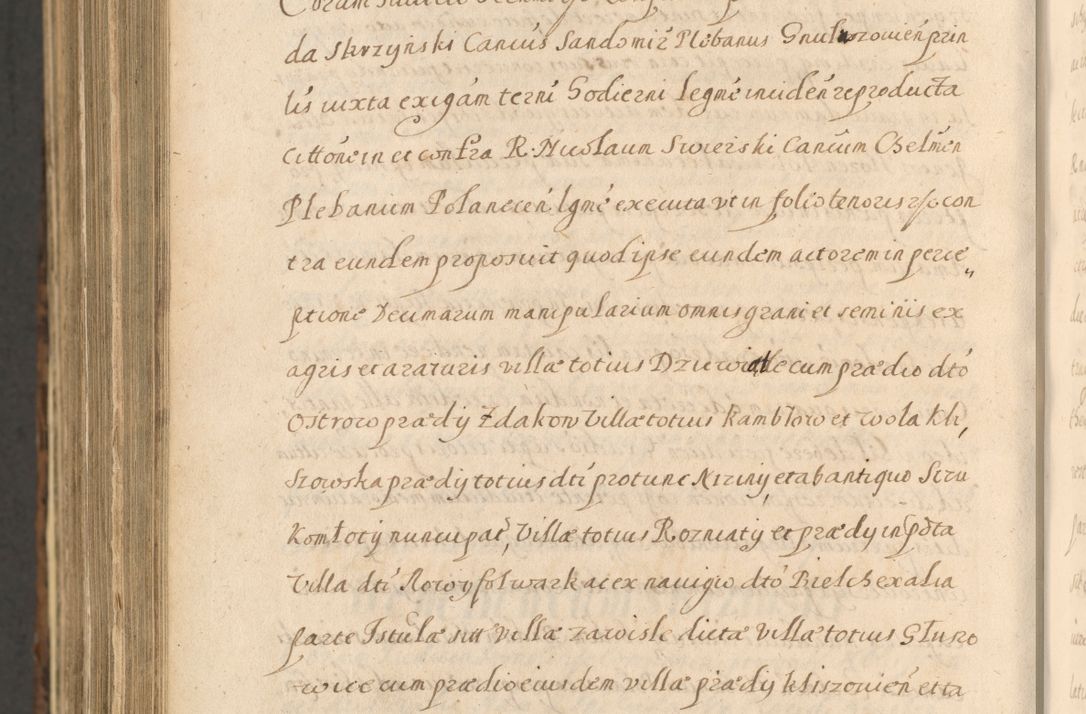 da Skrzyński Cancus Sandomir̃ Plebanus Gnuszowien prin
lis iuxta exigam termi Hodierni legmè inciden reproducta
Cittòne in et contra R. Nicolaum Swierski Cancum Chelmen
Plebanum Polanecen lgmè executa vt in folio tenoris con
tra eundem proposuit quod ipse eundem actorem in perce„
ptione Decimarum manipularium omnis grani et seminis ex
agris et araturis villæ totius cum prædio dtó
Ostrow prædij Zdakow Villæ totius Kambłow et Wola kli,
szowska prædij totius dti pro tunc Niziny, et ab antiquo Stru
komłoty nuncupat̃, Villæ totius Rozniaty et prædij in pdta
Villa dti Nowy folwark ac ex nauigio dtó Bielch ex alia
parte Istulæ sitæ villæ zawisle dictæ villæ totius Głuzo
wice cum prædio eiusdem villæ prædij kliszowien et ta